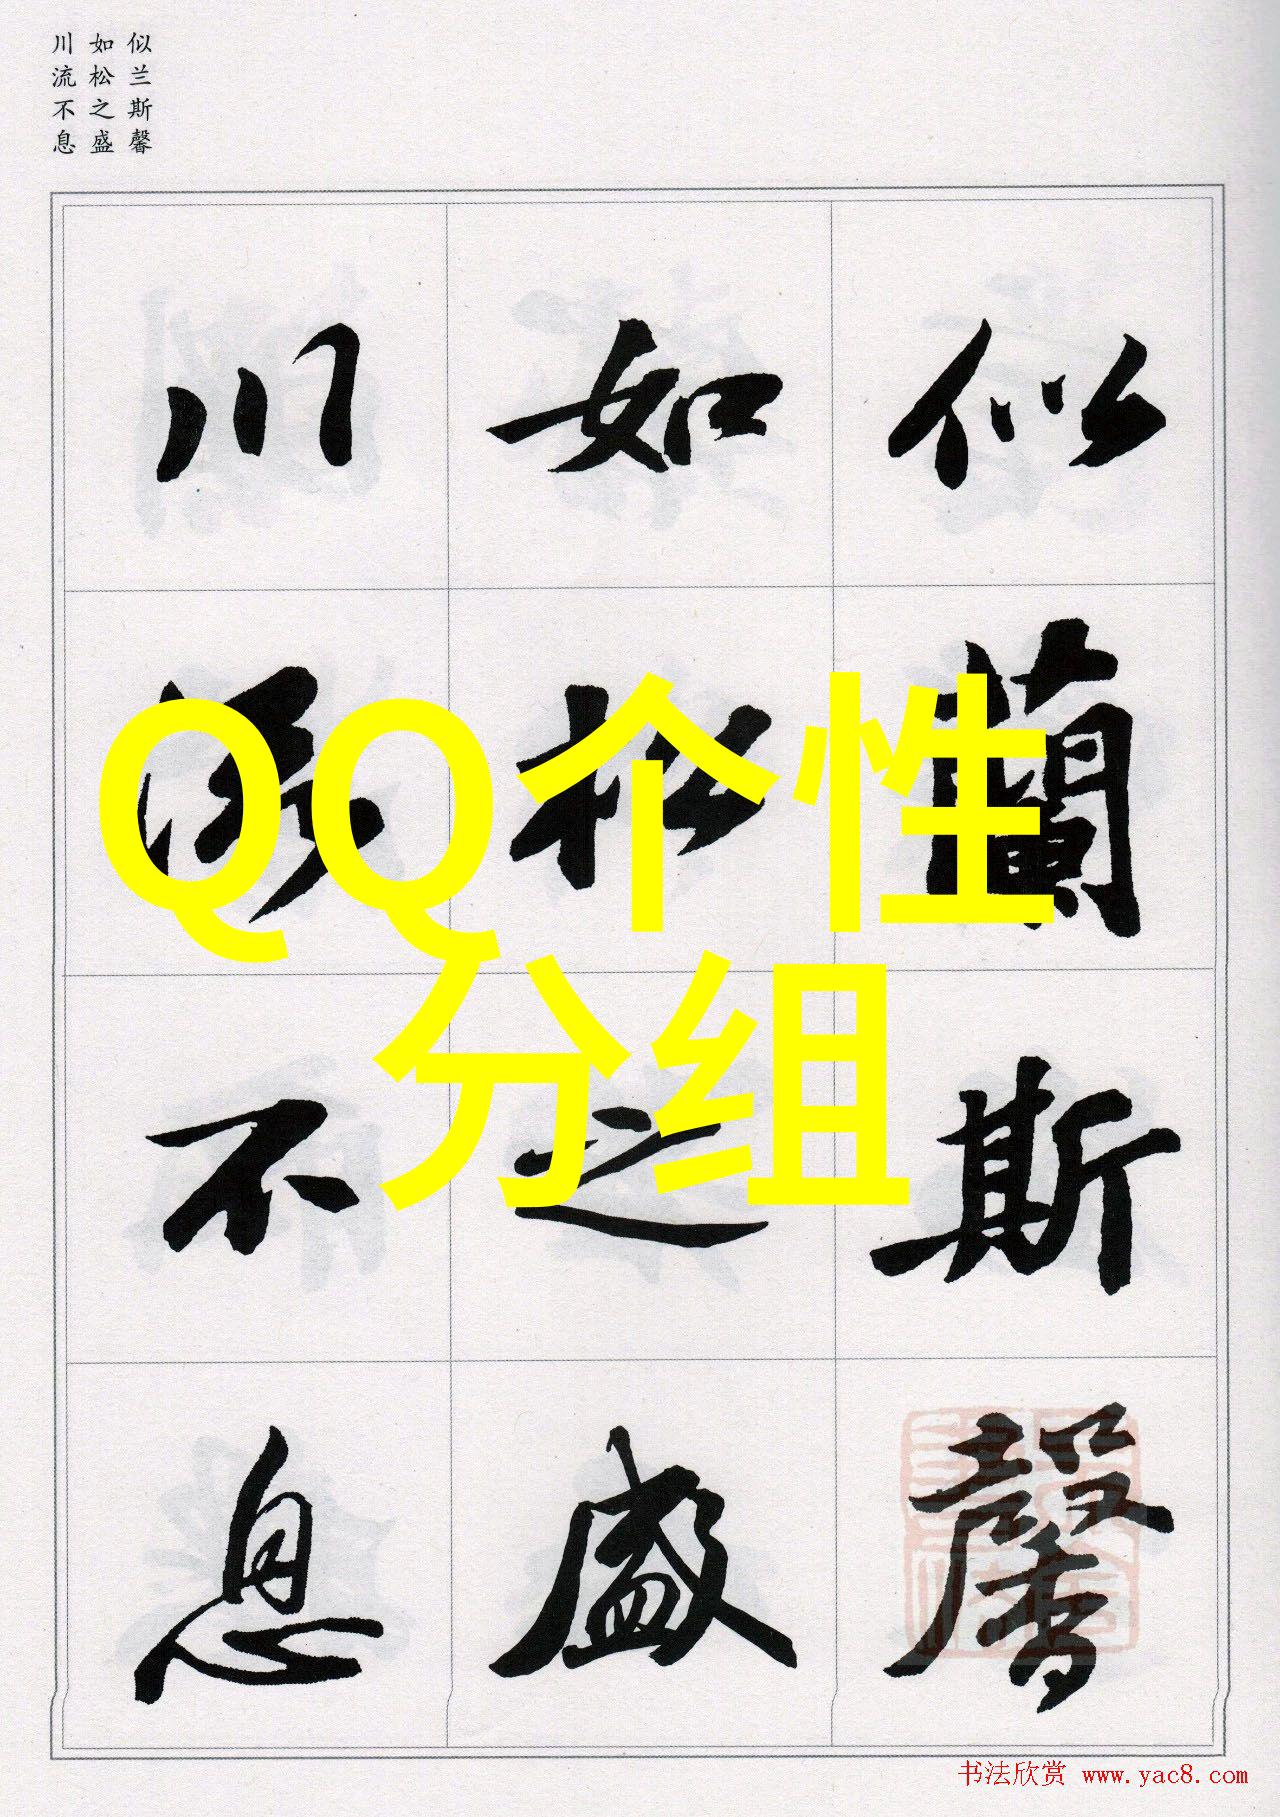 似兰斯馨
如松之盛
川流不息
似蘭斯馨
如松之盛
川流不息
QQ个性
分组
书法欣赏 www.yac8.com